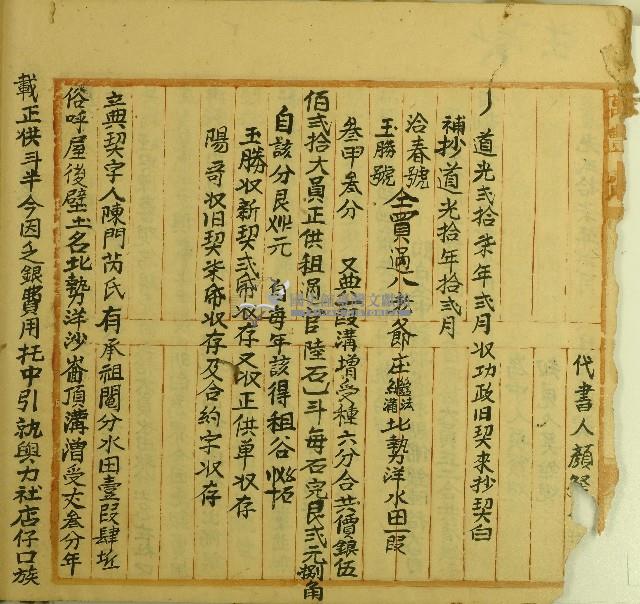 代書人顏
道光弍拾柒年弍月收功政旧契来抄契白
補抄道光拾年拾弍月
洽春號
玉勝號
仝買過八 爺庄 北勢洋水田一段
叁甲叁分 又典一段溝增受種六分合共價銀伍
佰弍拾大員正供租 陸石 斗每石完艮弍元捌角
自該分艮 元 自每年該得租谷
玉勝收新契弍 收存又收正供单收存
陽 收旧契柒 收存及合約字收存
立典契字人陳門芮氏有承祖鬮分水田壹段肆坵
俗呼屋後壁土名北勢洋沙崙頂溝漕受丈叁分年
載正供斗半今因乏銀費用托中引就與力社店仔口族